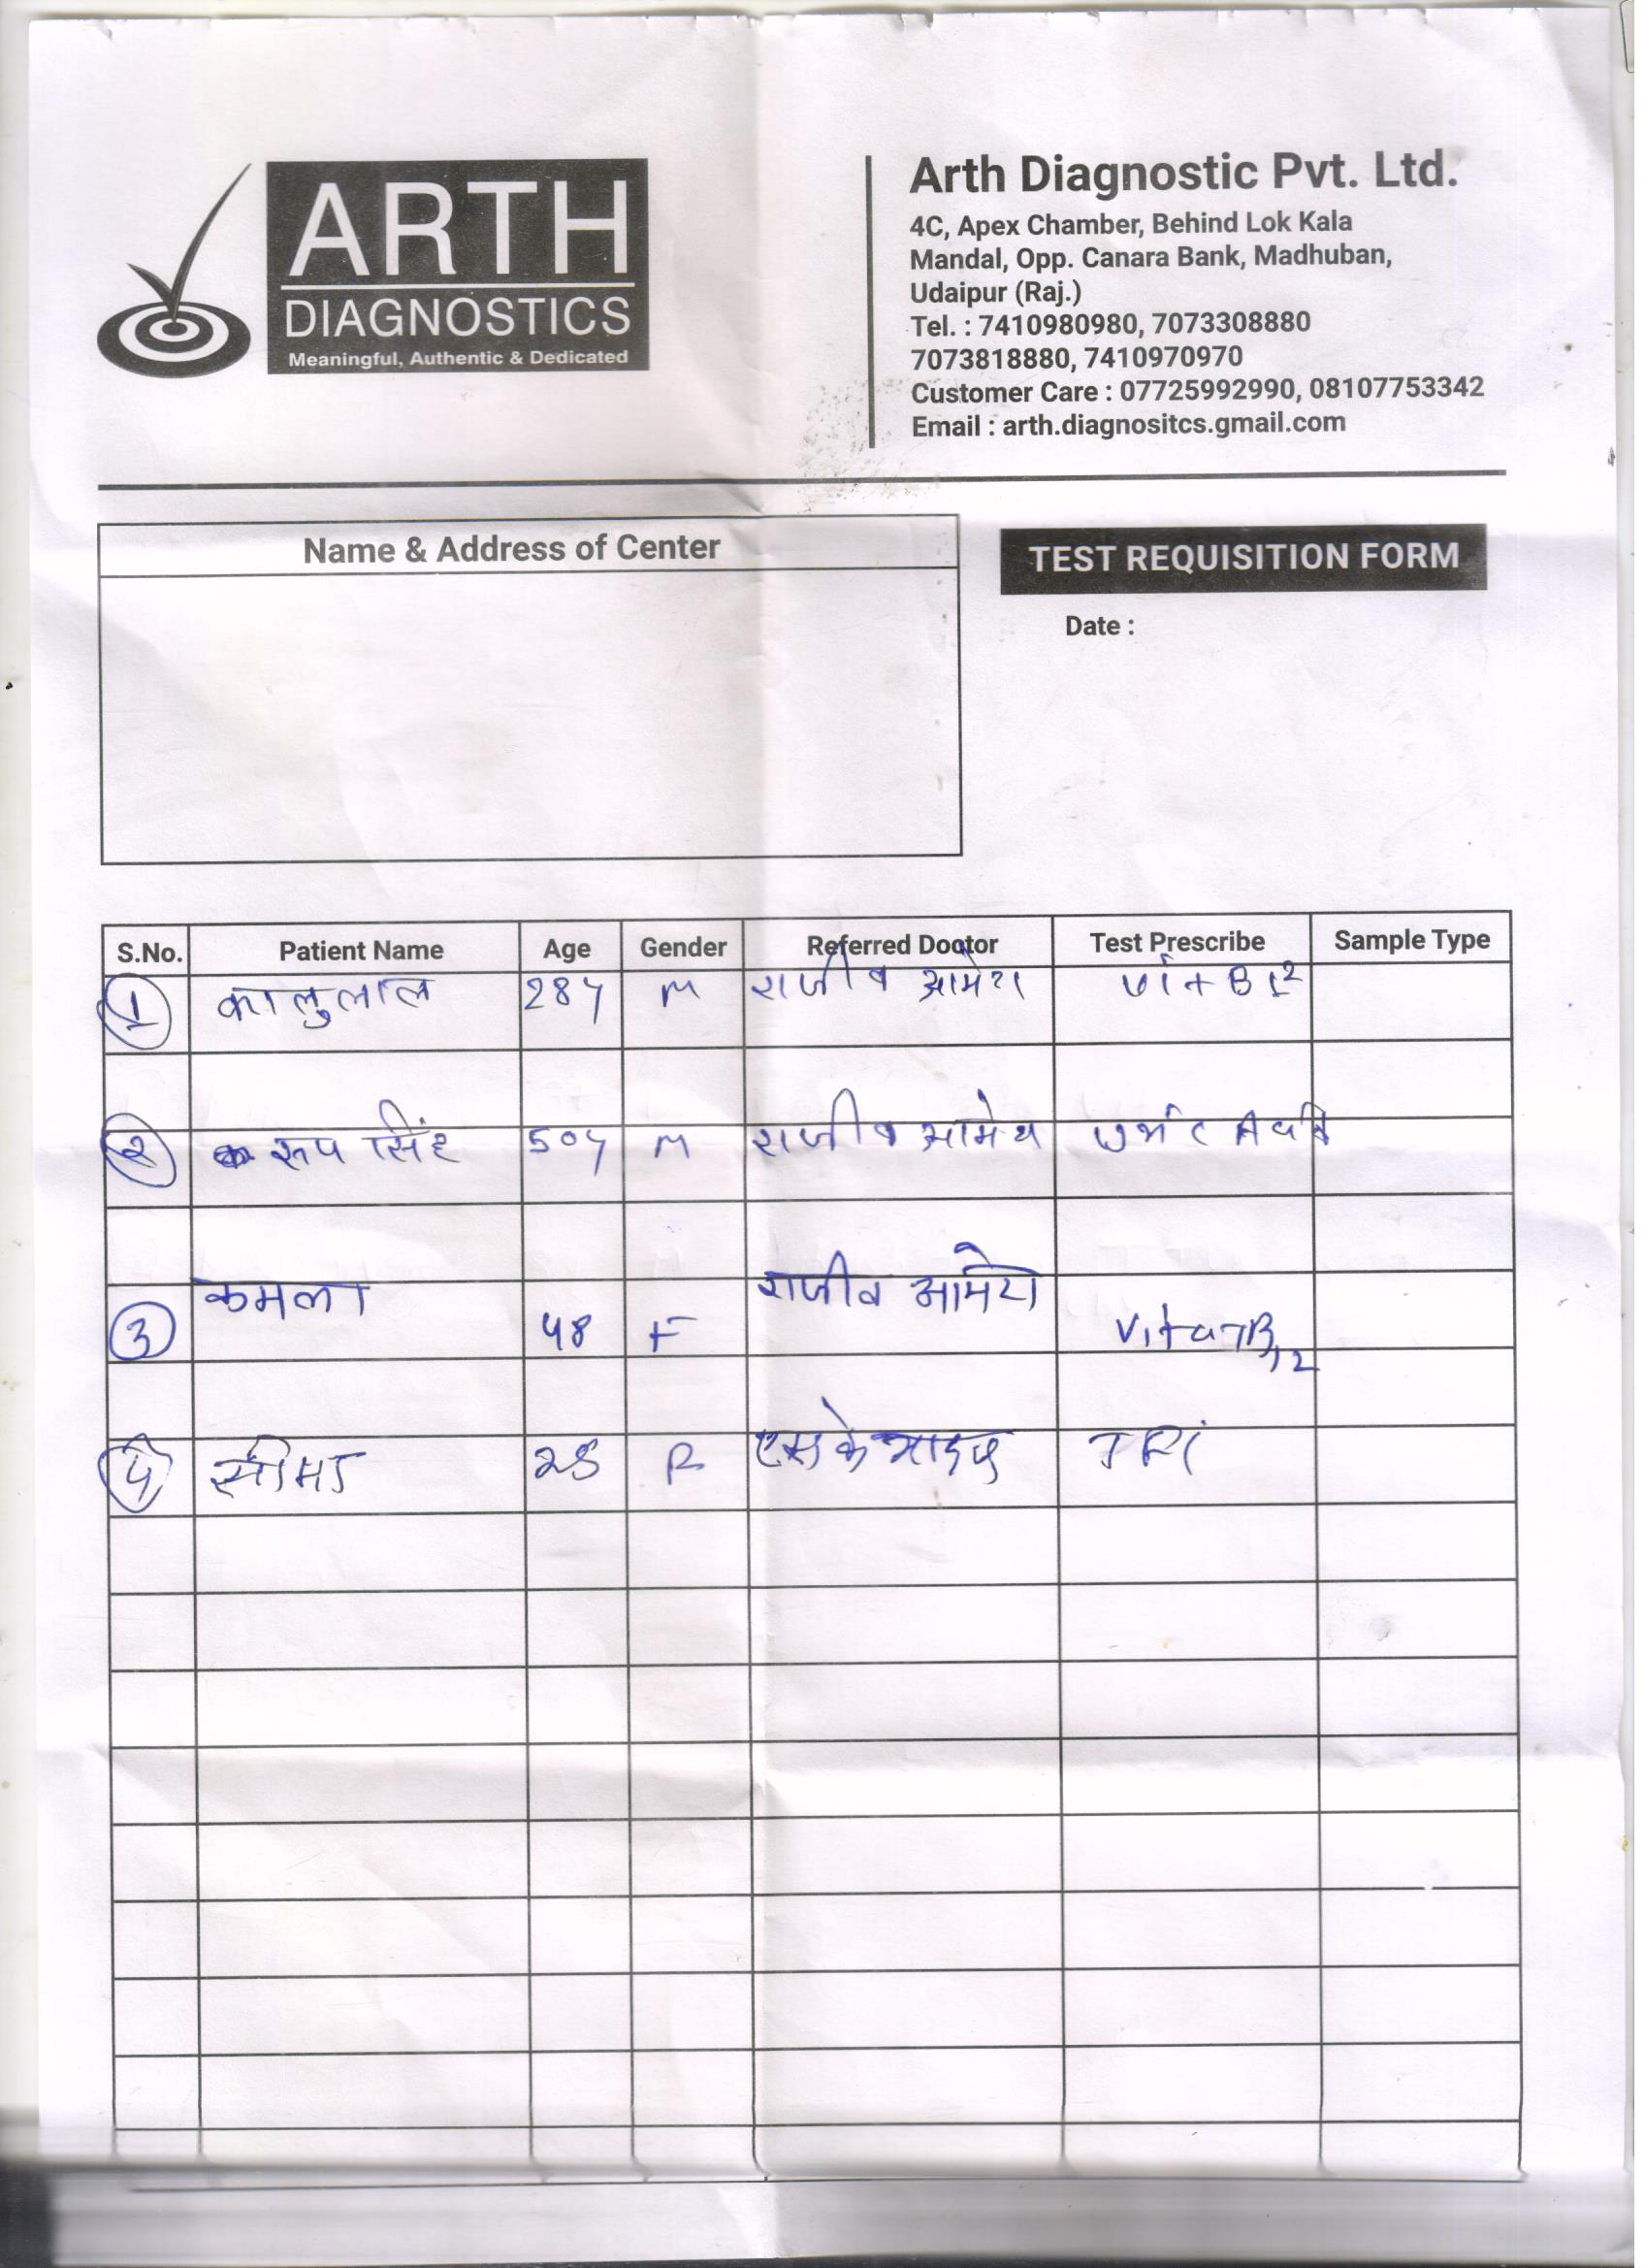 ARTH
DIAGNOSTICS
Meaningful, Authentic & Dedicated
Arth Diagnostic Pvt. Ltd.
4C, Apex Chamber, Behind Lok Kala
Mandal, Opp. Canara Bank, Madhuban,
Udaipur (Raj.)
Tel. : 7410980980, 7073308880
7073818880, 7410970970
Customer Care : 07725992990, 08107753342
Email : arth.diagnositcs.gmail.com
Name & Address of Center
TEST REQUISITION FORM
Date :
S.No. Patient Name Age Gender Referred Doctor Test Prescribe Sample Type
1 कालुलाल 28y M राजीव आमेरा Vit B12
2 रूप सिंह 50y M राजीव
3 कमला 48 F राजीव आमेरा
4 सीमा 28 F एस के